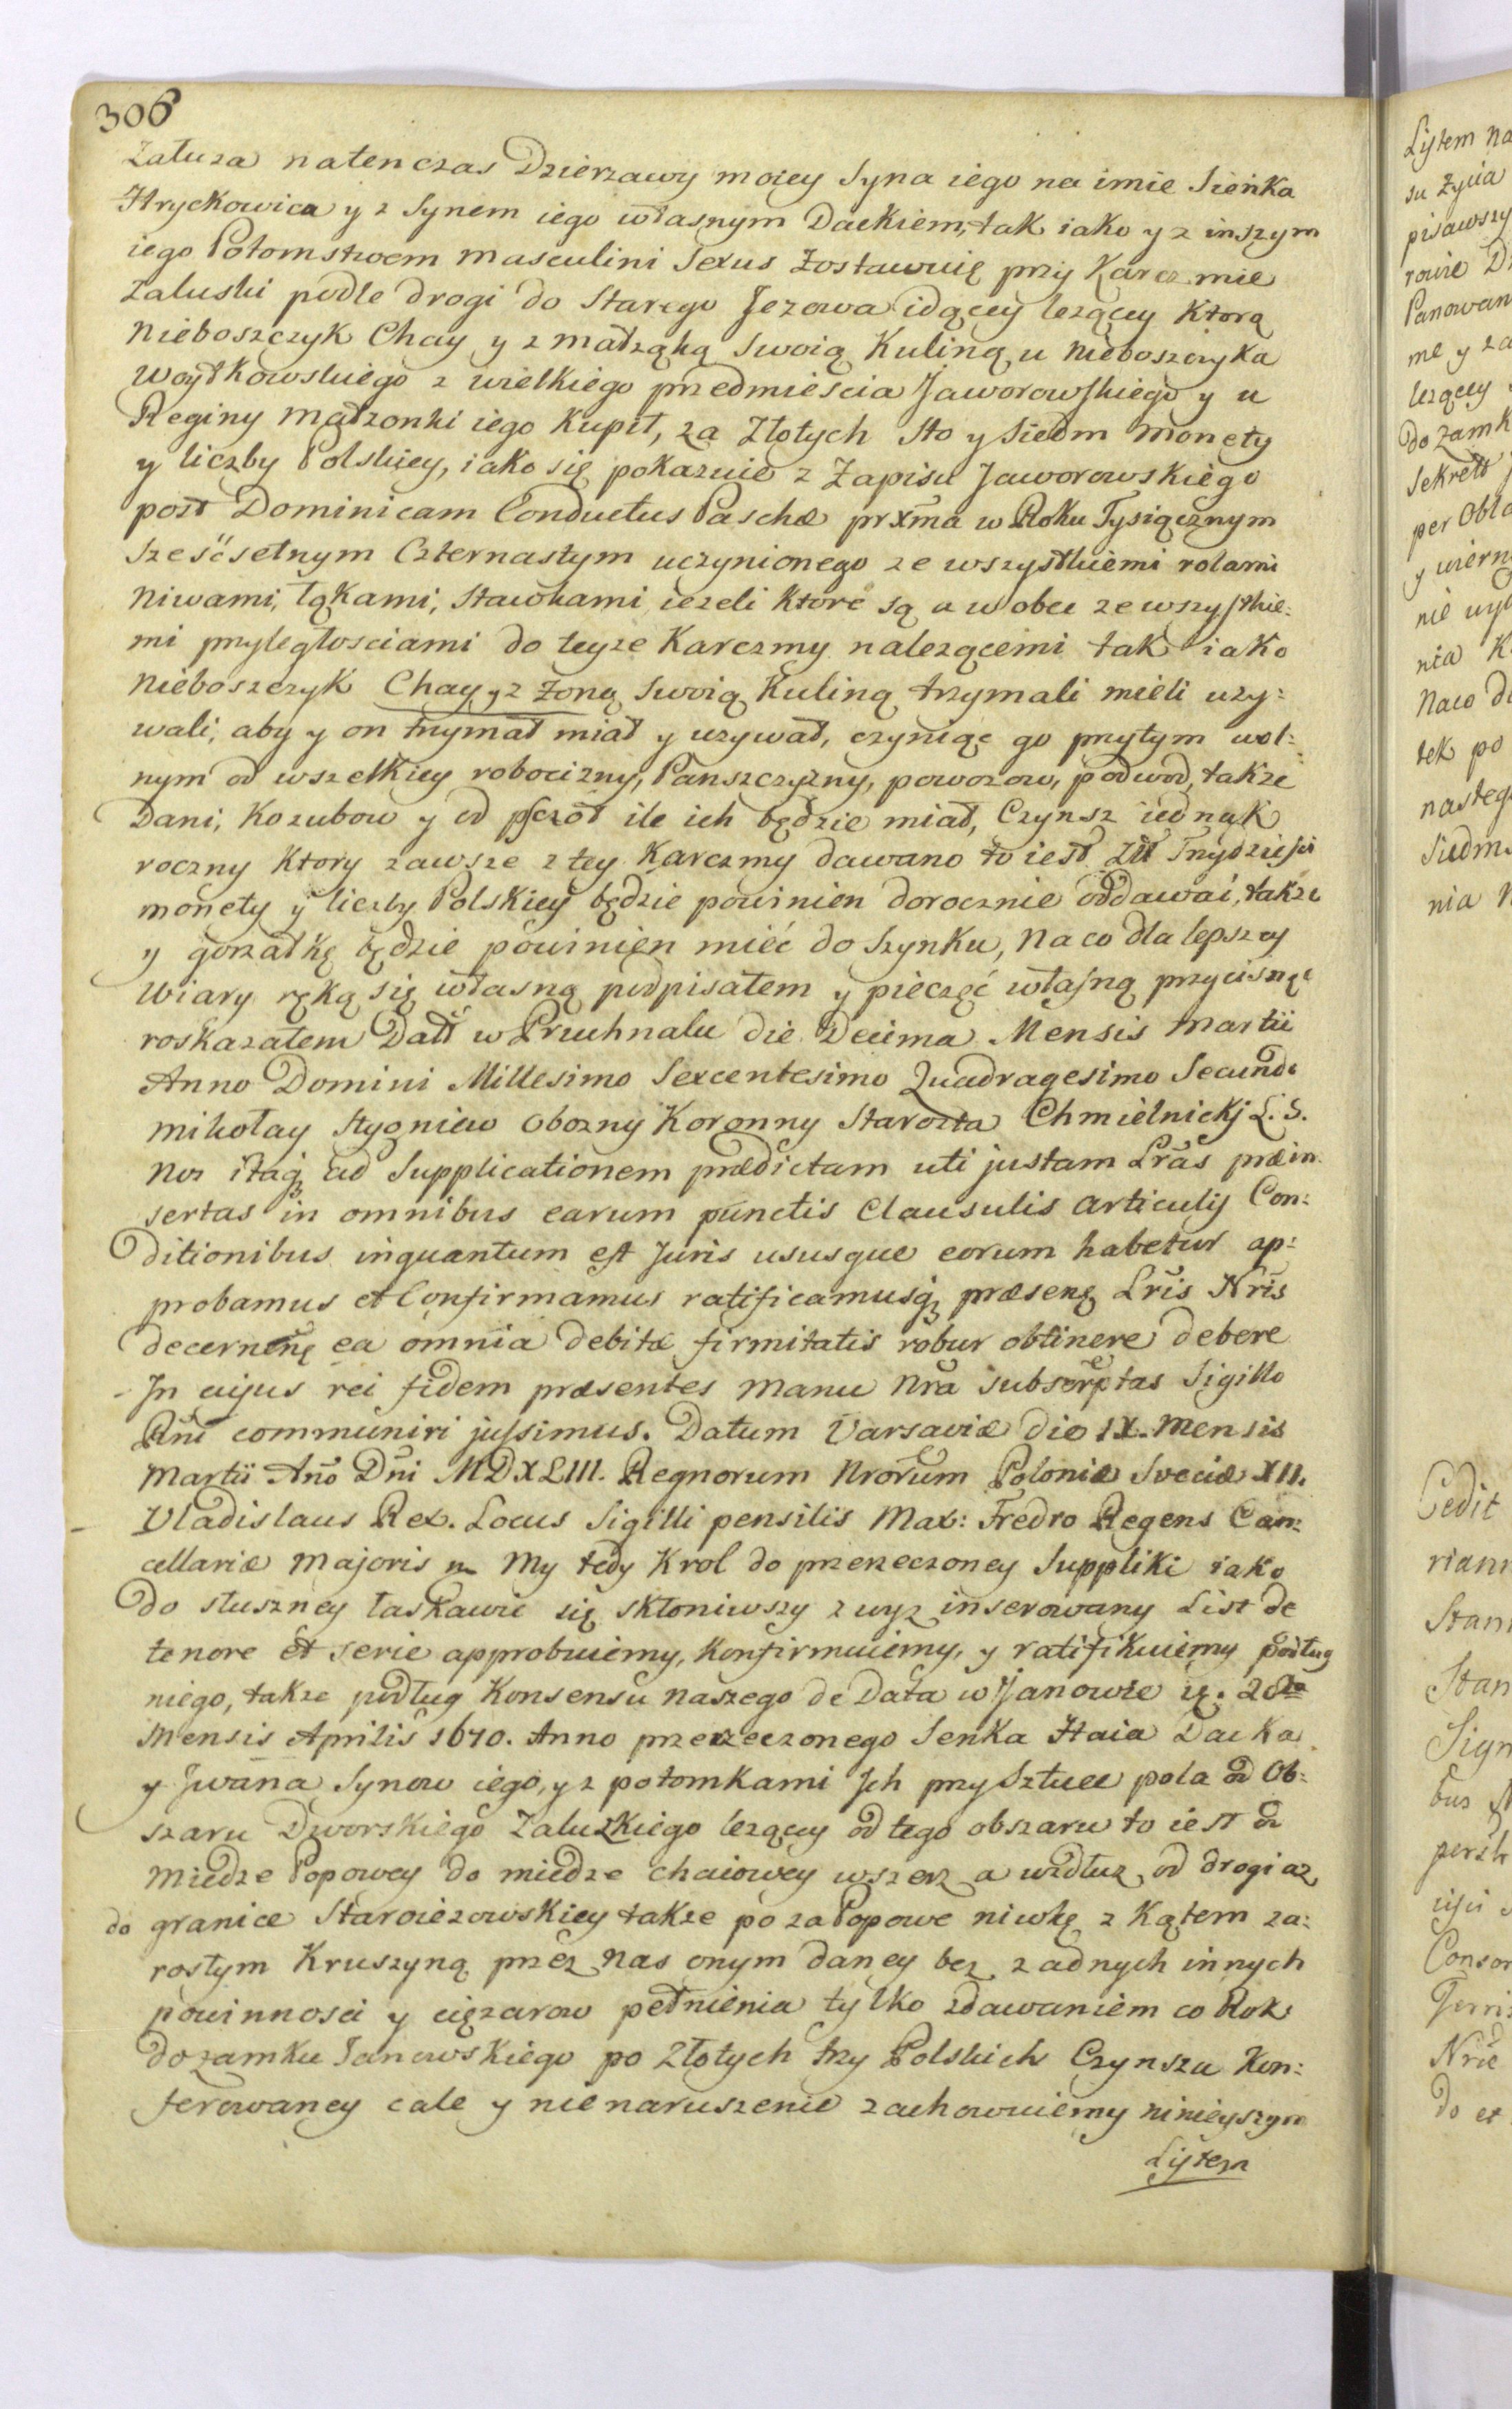 306
Załuza natenczas Dzierzawy moiey Syna iego na imie Sieńka
Hryckowica y z Synem iego własnym Dackiem, tak iako y z inszym
iego Potomstwem masculini Sexus Zostawuię przy Karczmie
Zaluski podle drogi do Starego Jezowa idącey lezącey Ktorą
Nieboszczyk Chay y z małząką Swoią Kuliną u Nieboszczyka
Woytkowskiego z wielkiego przedmieścia Jaworowskiego y u
Reginy małzonki iego Kupił, za Złotych Sto y Siedm Monety
y liczby Polskiey, iako się pokazuie z Zapisu Jaworowskiego
post Dominicam Conductus Paschæ prxma w Roku Tysiącznym
Sześćsetnym Czternastym uczynionego ze wszystkiemi rolami
Niwami, łąkami, Stawkami iezeli Ktore są a w obec ze wszystkie:
mi przyległosciami do teyze Karczmy nalezącemi tak iako
Nieboszczyk Chay y z Zoną Swoią Kuliną trzymali mieli uzy:
wali, aby y on trzymał miał y uzywał, czyniąc go przytym wol:
nym od wszelkiey robocizny, Panszczyzny, powozow, podwod, takze
Dani, Kozubow y od pszczół ile ich będzie miał, Czynsz iednak
roczny Ktory zawsze z tey Karczmy dawano to iest Złł Trzydzieści
monety y liczby Polskiey będzie powinien dorocznie oddawać, takze
y gorzałkę będzie powinien mieć do Szynku, Na co dla lepszey
Wiary ręką się własną podpisałem y pieczęć własną przycisnąć
roskazałem Datt w Pruchnalu die Decima Mensis Martii
Anno Domini Millesimo Sexcentesimo Quadragesimo Secundo
mikołay Stogniew Obozny Koronny Starosta Chmielnickj L.S.
Nos itaq ad Supplicationem prædictam uti justam Lras præin
sertas in omnibus earum punctis Clausulis articulis Con:
ditionibus inquantum est Juris ususque eorum habetur ap:
probamus et Confirmamus ratificamusq præsenę Lris Nris
decernenę ea omnia debitæ firmitatis robur obtinere debere
In cujus rei fidem præsentes manu Nra subscrptas Sigillo
Rni communiri jussimus. Datum Varsaviæ die IX. Mensis
Martii Ano Dni MDXLIII. Regnorum Nrorum Poloniæ Sveciæ XII.
Vladislaus Rex. Locus Sigilli pensilis Max: Fredro Regens Can:
cellariæ Majoris My tedy Krol do przerzeczoney Suppliki iako
do słuszney łaskawie się skłoniwszy zwyz inserowany List de
tenore et serie approbuiemy, Konfirmuiemy, y ratifikuiemy podług
niego, takze podług Konsensu naszego de Data w Janowie 20
Mensis Aprilis 1670. Anno przerzeczonego Senka Haia Dacka
y Jwana Synow iego, y z potomkami Jch przy Sztuce pola od Ob:
szaru Dworskiego Załuzkiego lezącey od tego obszaru to iest od
miedze Popowey do miedze Chaiowey wszerz a wzdłuz od drogi az
do granice Staroiezowskiey takze po za Popowe niwkę z Kątem za:
rostym Kruszyną przez nas onym daney bez zadnych innych
powinnosci y cięzarow pełnienia tylko zdawaniem co Rok
do zamku Janowskiego po Złotych trzy Polskich Czynszu Kon:
ferowaney cale y nienaruszenie zachowuiemy ninieyszym
Listem
Lystem na
su zycia
pisawszy
rowie
Panowan
me y za
lezącey
do zamk
Sekrett
per Obla
y wiern
nie
nia
Naco
tek po
nasteg
Siedm
nia
Cedit
riann
Stan
Stan
Sign
bus
persh
Conson
Terris
Nrie
do et